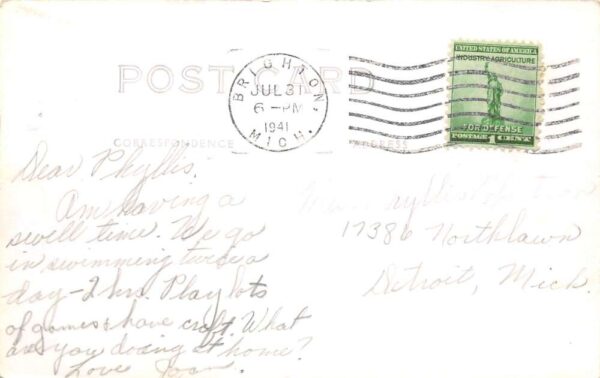 POST CARD
BRIGHTON, MICH.
JUL 31
6-PM
1941
UNITED STATES OF AMERICA
INDUSTRY AGRICULTURE
FOR DEFENSE
POSTAGE 1 CENT
CORRESPONDENCE
ADDRESS
Dear Phyllis,
Am having a
swell time. We go
in swimming twice a
day - 2 hrs. Play lots
of games & have craft. What
are you doing at home?
Love Joan.
17386 Northlawn
Detroit, Mich.